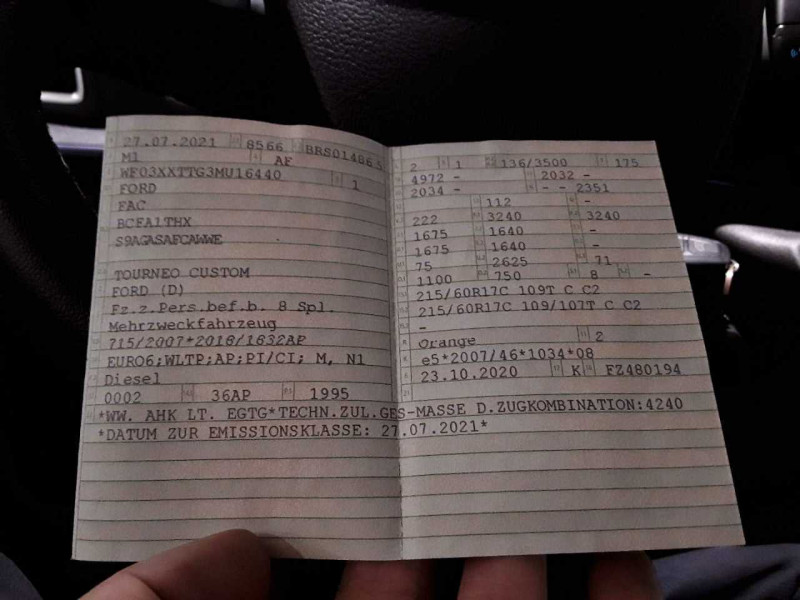 27.07.2021 8566 BRS01486 5
M1 AF
WF03XXTTG3MU16440 1
FORD
FAC
BCFA1THX
S9AGASAFCAWWE
TOURNEO CUSTOM
FORD (D)
Fz.z.Pers.bef.b. 8 Spl.
Mehrzweckfahrzeug
715/2007*2018/1832AP
EURO6;WLTP;AP;PI/CI; M, N1
Diesel
0002 36AP 1995
2 1 136/3500 175
4972 - 2032 -
2034 - - - 2351
112 -
222 3240 3240
1675 1640 -
1675 1640 -
75 2625 71
1100 750 8 -
215/60R17C 109T C C2
215/60R17C 109/107T C C2
-
Orange 2
e5*2007/46*1034*08
23.10.2020 K FZ480194
*WW. AHK LT. EGTG*TECHN.ZUL.GES-MASSE D.ZUGKOMBINATION:4240
*DATUM ZUR EMISSIONSKLASSE: 27.07.2021*